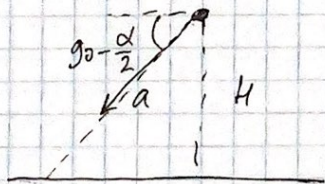 90 - α/2
a
H